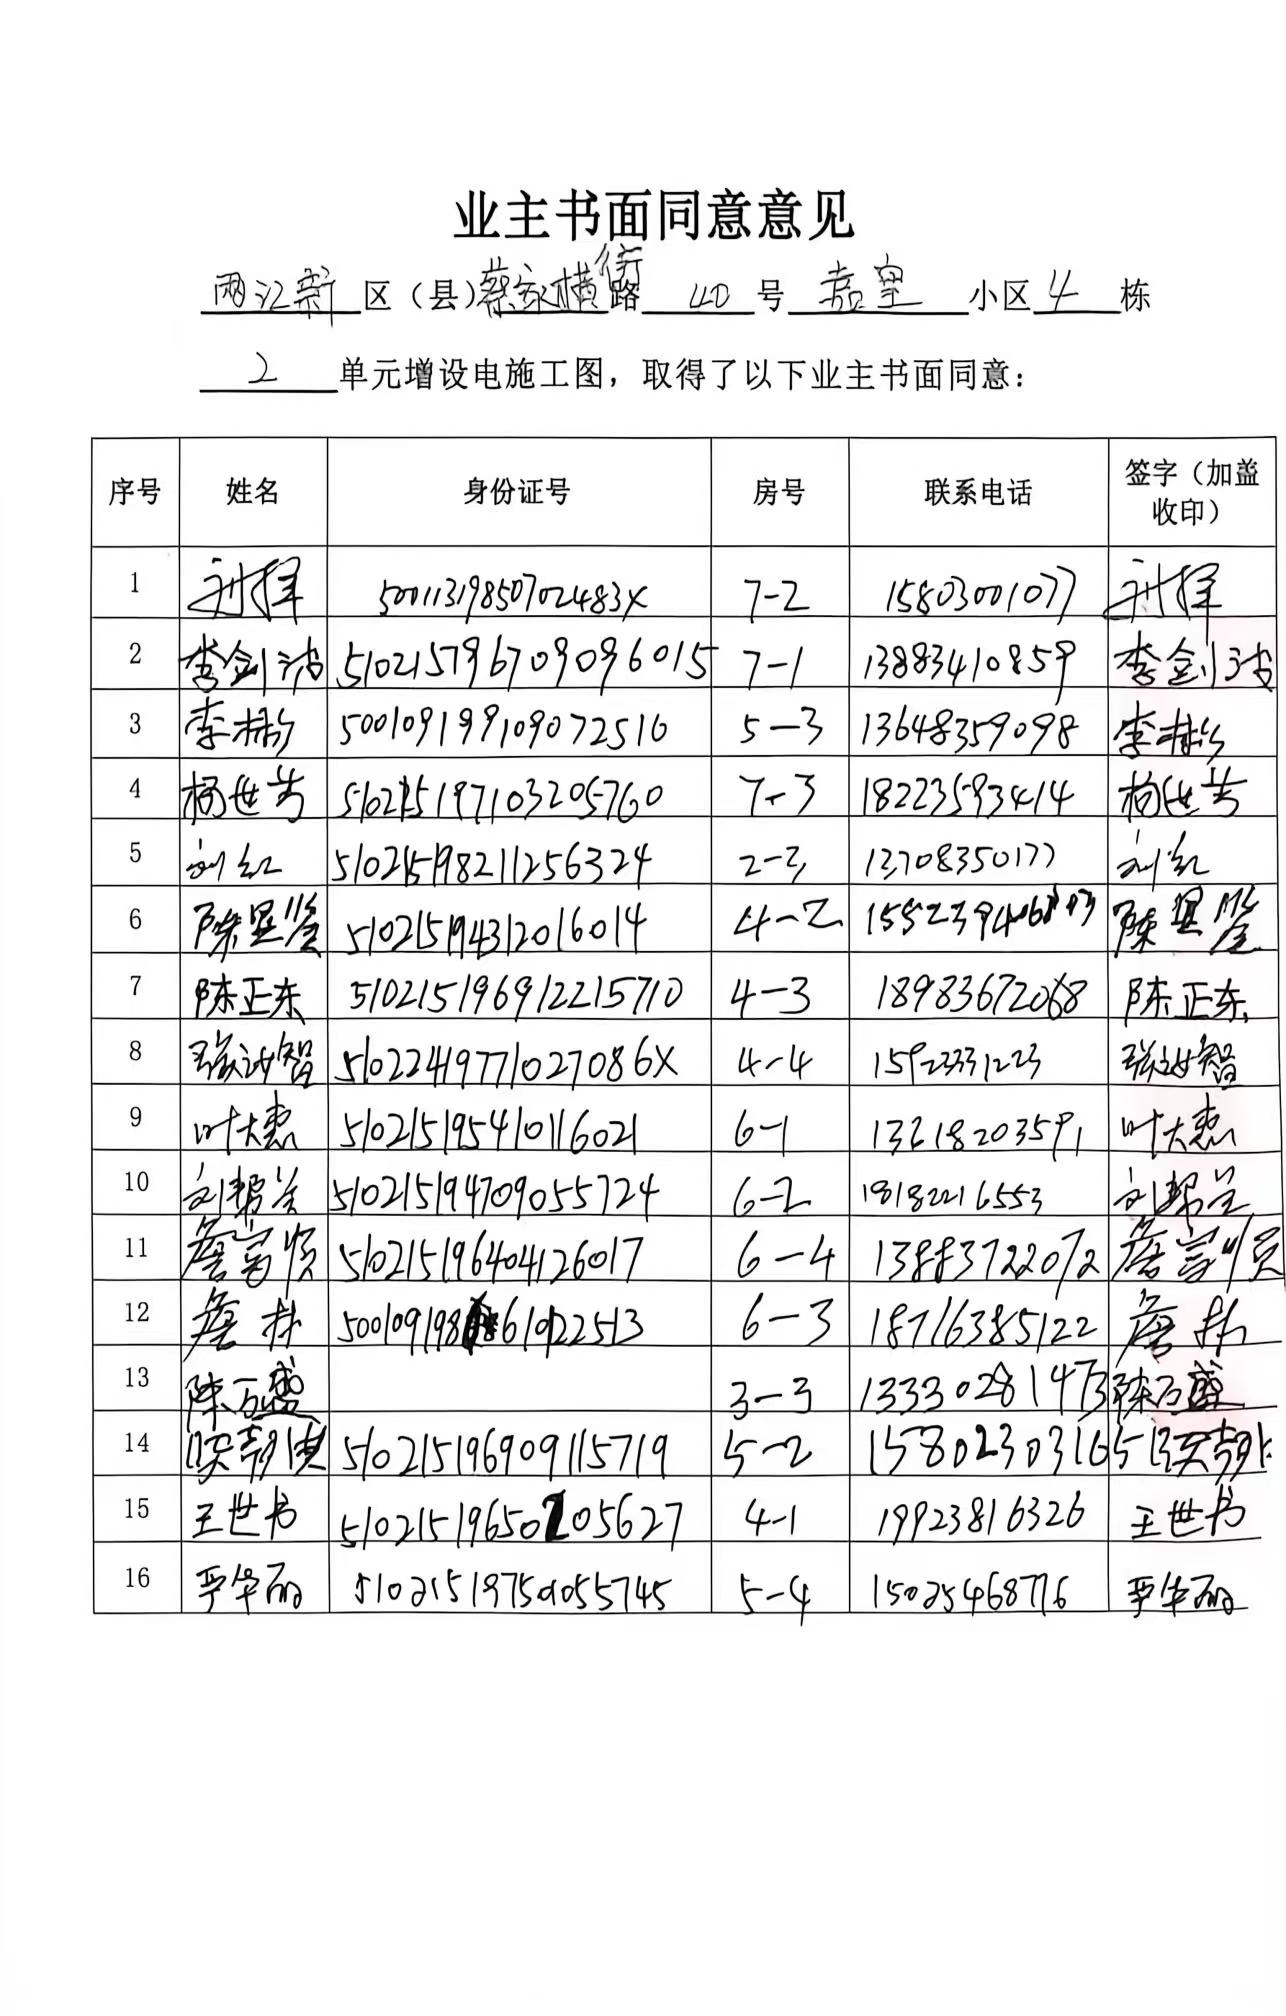 业主书面同意意见
两江新区（县）蔡家横街路 40 号 嘉室 小区 4 栋
2 单元增设电施工图，取得了以下业主书面同意：
序号 姓名 身份证号 房号 联系电话 签字（加盖收印）
1 50011319850702483X 7-2 15803001077
2 李剑波 510215796709096015 7-1 13883410859 李剑波
3 李彬 500109199109072510 5-3 13648359098 李彬
4 杨世芳 510215197103205760 7-3 18223593414 杨世芳
5 刘红 510215198211256324 2-3 13708350177 刘红
6 陈显鉴 510215194312016014 4-2 陈显鉴
7 陈正东 510215196912215710 4-3 18983672068 陈正东
8 51022419771027086X 4-4 15923331223
9 叶大惠 510215195410116021 6-1 13618203591 叶大惠
10 刘帮兰 510215194709055724 6-2 18182216553 刘帮兰
11 詹富顺 510215196404126017 6-4 13883722072 詹富顺
12 詹林 6-3 18716385122 詹林
13 陈万盛 3-3 13330281473 陈万盛
14 510215196909115719 5-2 15802303165
15 王世书 51021519650205627 4-1 19923816326 王世书
16 严华丽 510215197501055745 5-4 15025468776 严华丽